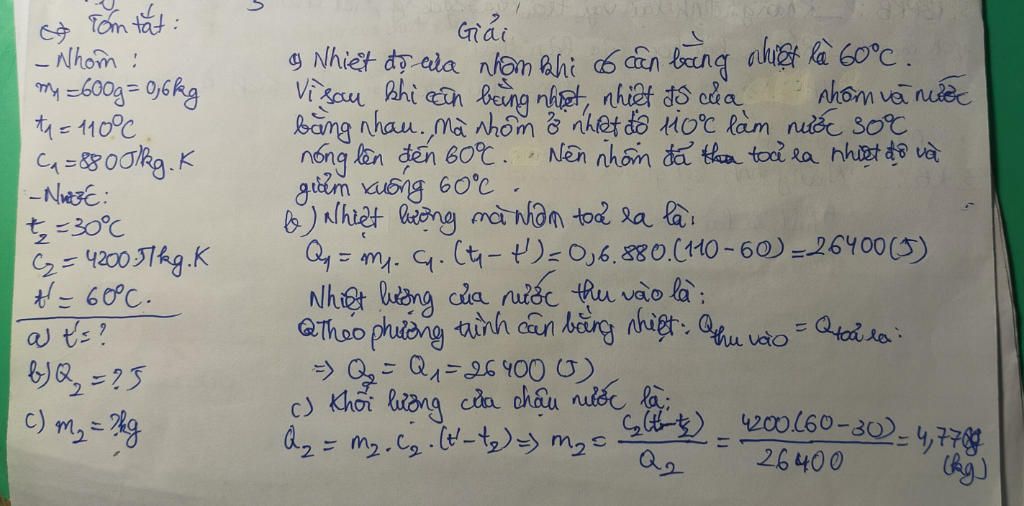 Tóm tắt:
- Nhôm:
m₁ = 600g = 0,6kg
t₁ = 110°C
c₁ = 880J/kg.K
- Nước:
t₂ = 30°C
c₂ = 4200J/kg.K
t' = 60°C.
a) t' = ?
b) Q₂ = ? J
c) m₂ = ?kg
Giải
a) Nhiệt độ của nhôm khi có cân bằng nhiệt là 60°C.
Vì sau khi cân bằng nhiệt, nhiệt độ của nhôm và nước
bằng nhau. Mà nhôm ở nhiệt độ 110°C làm nước 30°C
nóng lên đến 60°C. Nên nhôm đã toả ra nhiệt độ và
giảm xuống 60°C.
b) Nhiệt lượng mà nhôm toả ra là:
Q₁ = m₁. c₁. (t₁ - t') = 0,6.880.(110 - 60) = 26400 (J)
Nhiệt lượng của nước thu vào là:
Theo phương trình cân bằng nhiệt: Q thu vào = Q toả ra:
=> Q₂ = Q₁ = 26400 (J)
c) Khối lượng của chậu nước là:
Q₂ = m₂. c₂. (t' - t₂) => m₂ = c₂(t' - t₂) / Q₂ = 4200.(60 - 30) / 26400 = 4,77 (kg)